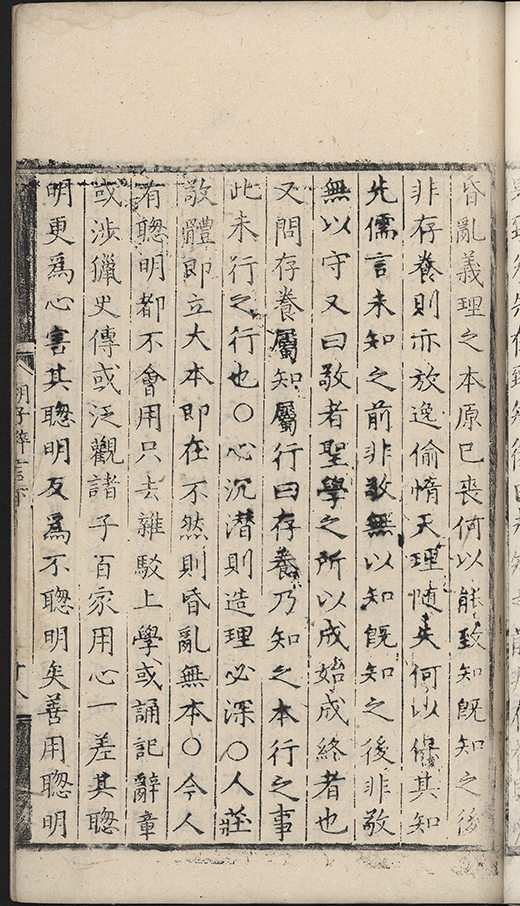 昏亂義理之本原已喪何以能致知既知之後
非存養則亦放逸偷惰天理隨失何以保其知
先儒言未知之前非敬無以知既知之後非敬
無以守又曰敬者聖學之所以成始成終者也
又問存養屬知屬行曰存養乃知之本行之事
此未行之行也○心沉潜則造理必深○人莊
敬體即立大本即在不然則昏亂無本○今人
有聰明都不會用只去雜駁上學或誦記辭章
或涉獵史傳或泛觀諸子百家用心一差其聰
明更爲心害其聰明反爲不聰明矣善用聰明
胡子粹言
十八